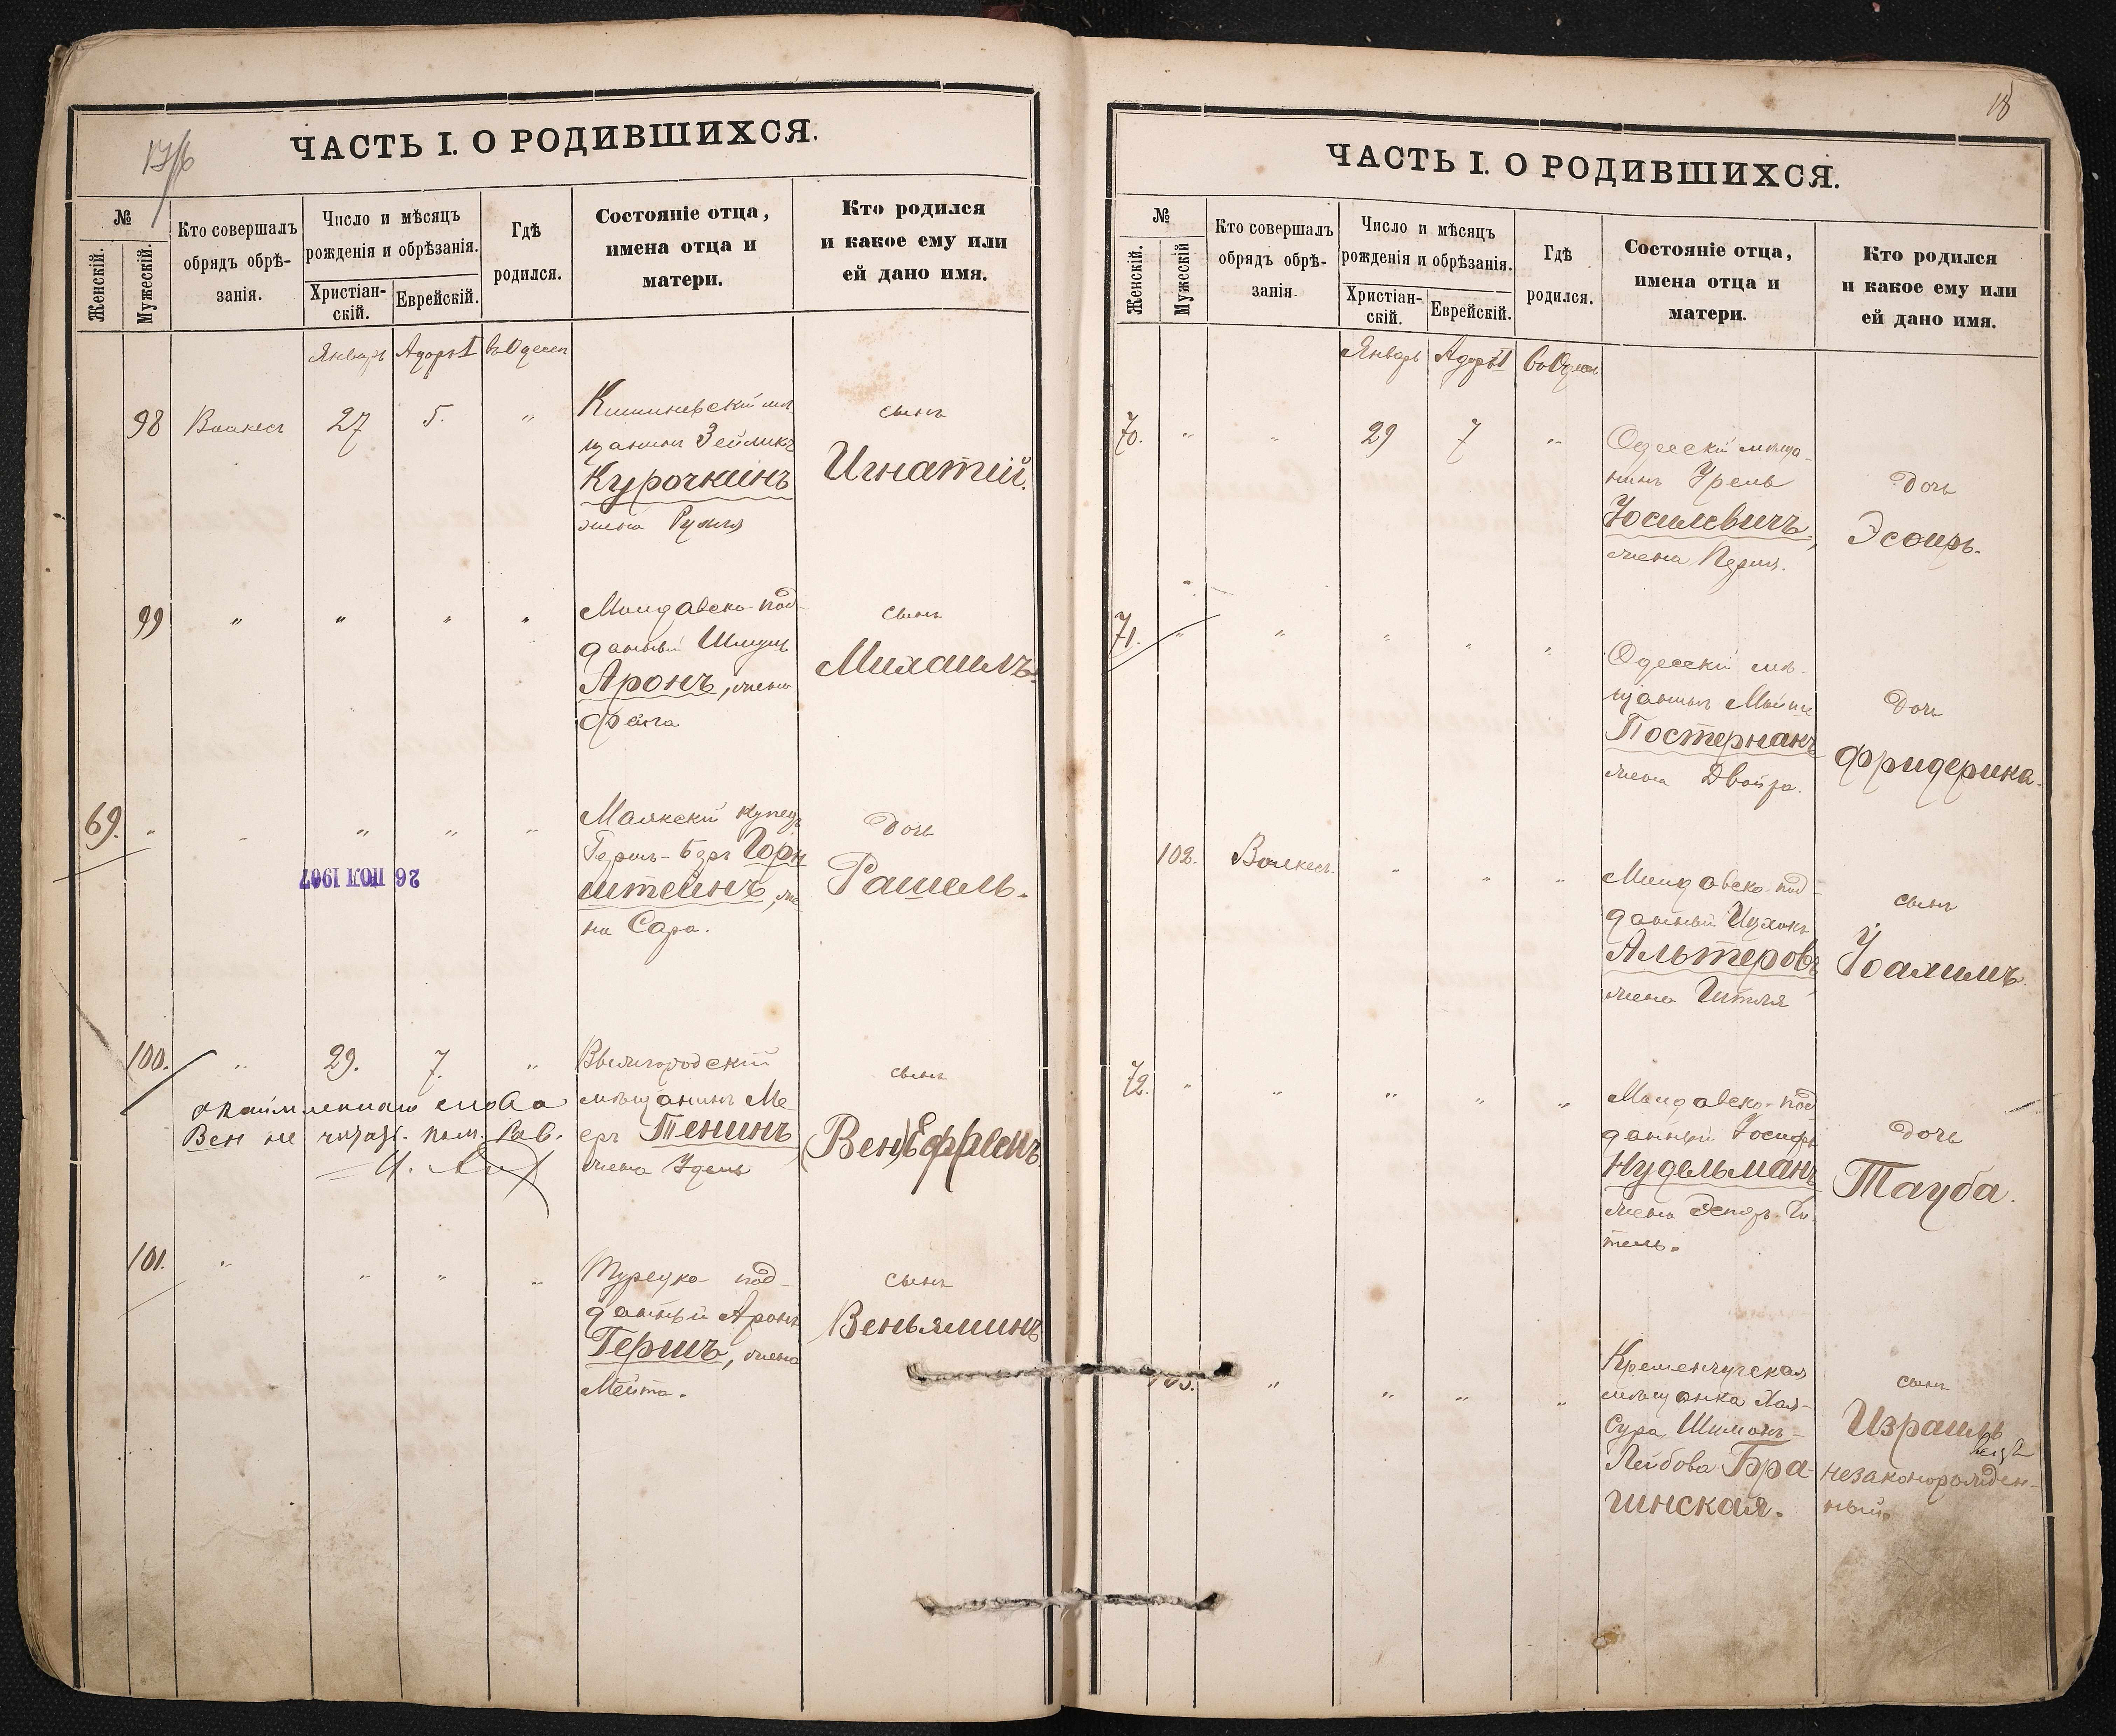 17/б
ЧАСТЬ I. О РОДИВШИХСЯ.
№
Женскій.
Мужескій.
Кто совершалъ
обрядъ обрѣ-
занія.
Число и мѣсяцъ
рожденія и обрѣзанія.
Христіан-
скій.
Еврейскій.
Гдѣ
родился.
Состояніе отца,
имена отца и
матери.
Кто родился
и какое ему или
ей дано имя.
Январь Адоръ I въ Одессѣ
98 27 5. "
Кишиневскій мѣ-
щанинъ Зейликъ
Курочкинъ
жена Рухля
сынъ
Игнатій.
99 " " " "
Молдавско-под-
данный Шмуль
Аронъ, жена
Фейга
сынъ
Михаилъ.
69. " " " " "
Маякскій купецъ
Гершъ-Беръ Горн
штейнъ, же
на Сара.
дочь
Рашель.
26 ІЮЛ 1907
100. " 29. 7. "
мѣщанинъ Ме-
еръ Тенинъ
жена Удель
сынъ
(Вен) Ефремъ.
слова
Вен не читать. пом. Рав.
101. " " " "
Турецко-под-
данный Аронъ
Гершъ, жена
Мейта.
сынъ
Веньяминъ
18
ЧАСТЬ I. О РОДИВШИХСЯ.
№
Женскій.
Мужескій
Кто совершалъ
обрядъ обрѣ-
занія.
Число и мѣсяцъ
рожденія и обрѣзанія.
Христіан-
скій.
Еврейскій.
Гдѣ
родился.
Состояніе отца,
имена отца и
матери.
Кто родился
и какое ему или
ей дано имя.
Январь Адоръ I въ Одессѣ
70. " " 29 7 "
Одесскій мѣща-
нинъ Урель
Іосилевичъ,
жена Перля.
дочь
Эсѳирь.
71. " " " " "
Одесскій мѣ-
щанинъ Мойше
Постернакъ
жена Двойра.
дочь
Фридерика.
102. " " "
Молдавско-под-
данный Ицхокъ
Альтеровъ
жена Гитля
сынъ
Іоахимъ
72. " " " " "
Молдавско-под
данный Іосифъ
Нудельманъ
жена Эстеръ-Ги-
тель.
дочь
Тауба.
103. " " " "
Кременчугская
мѣщанка Хая-
Сура Шимонъ-
Лейбова Бра-
гинская.
сынъ
Израиль
незаконорожден-
ный.